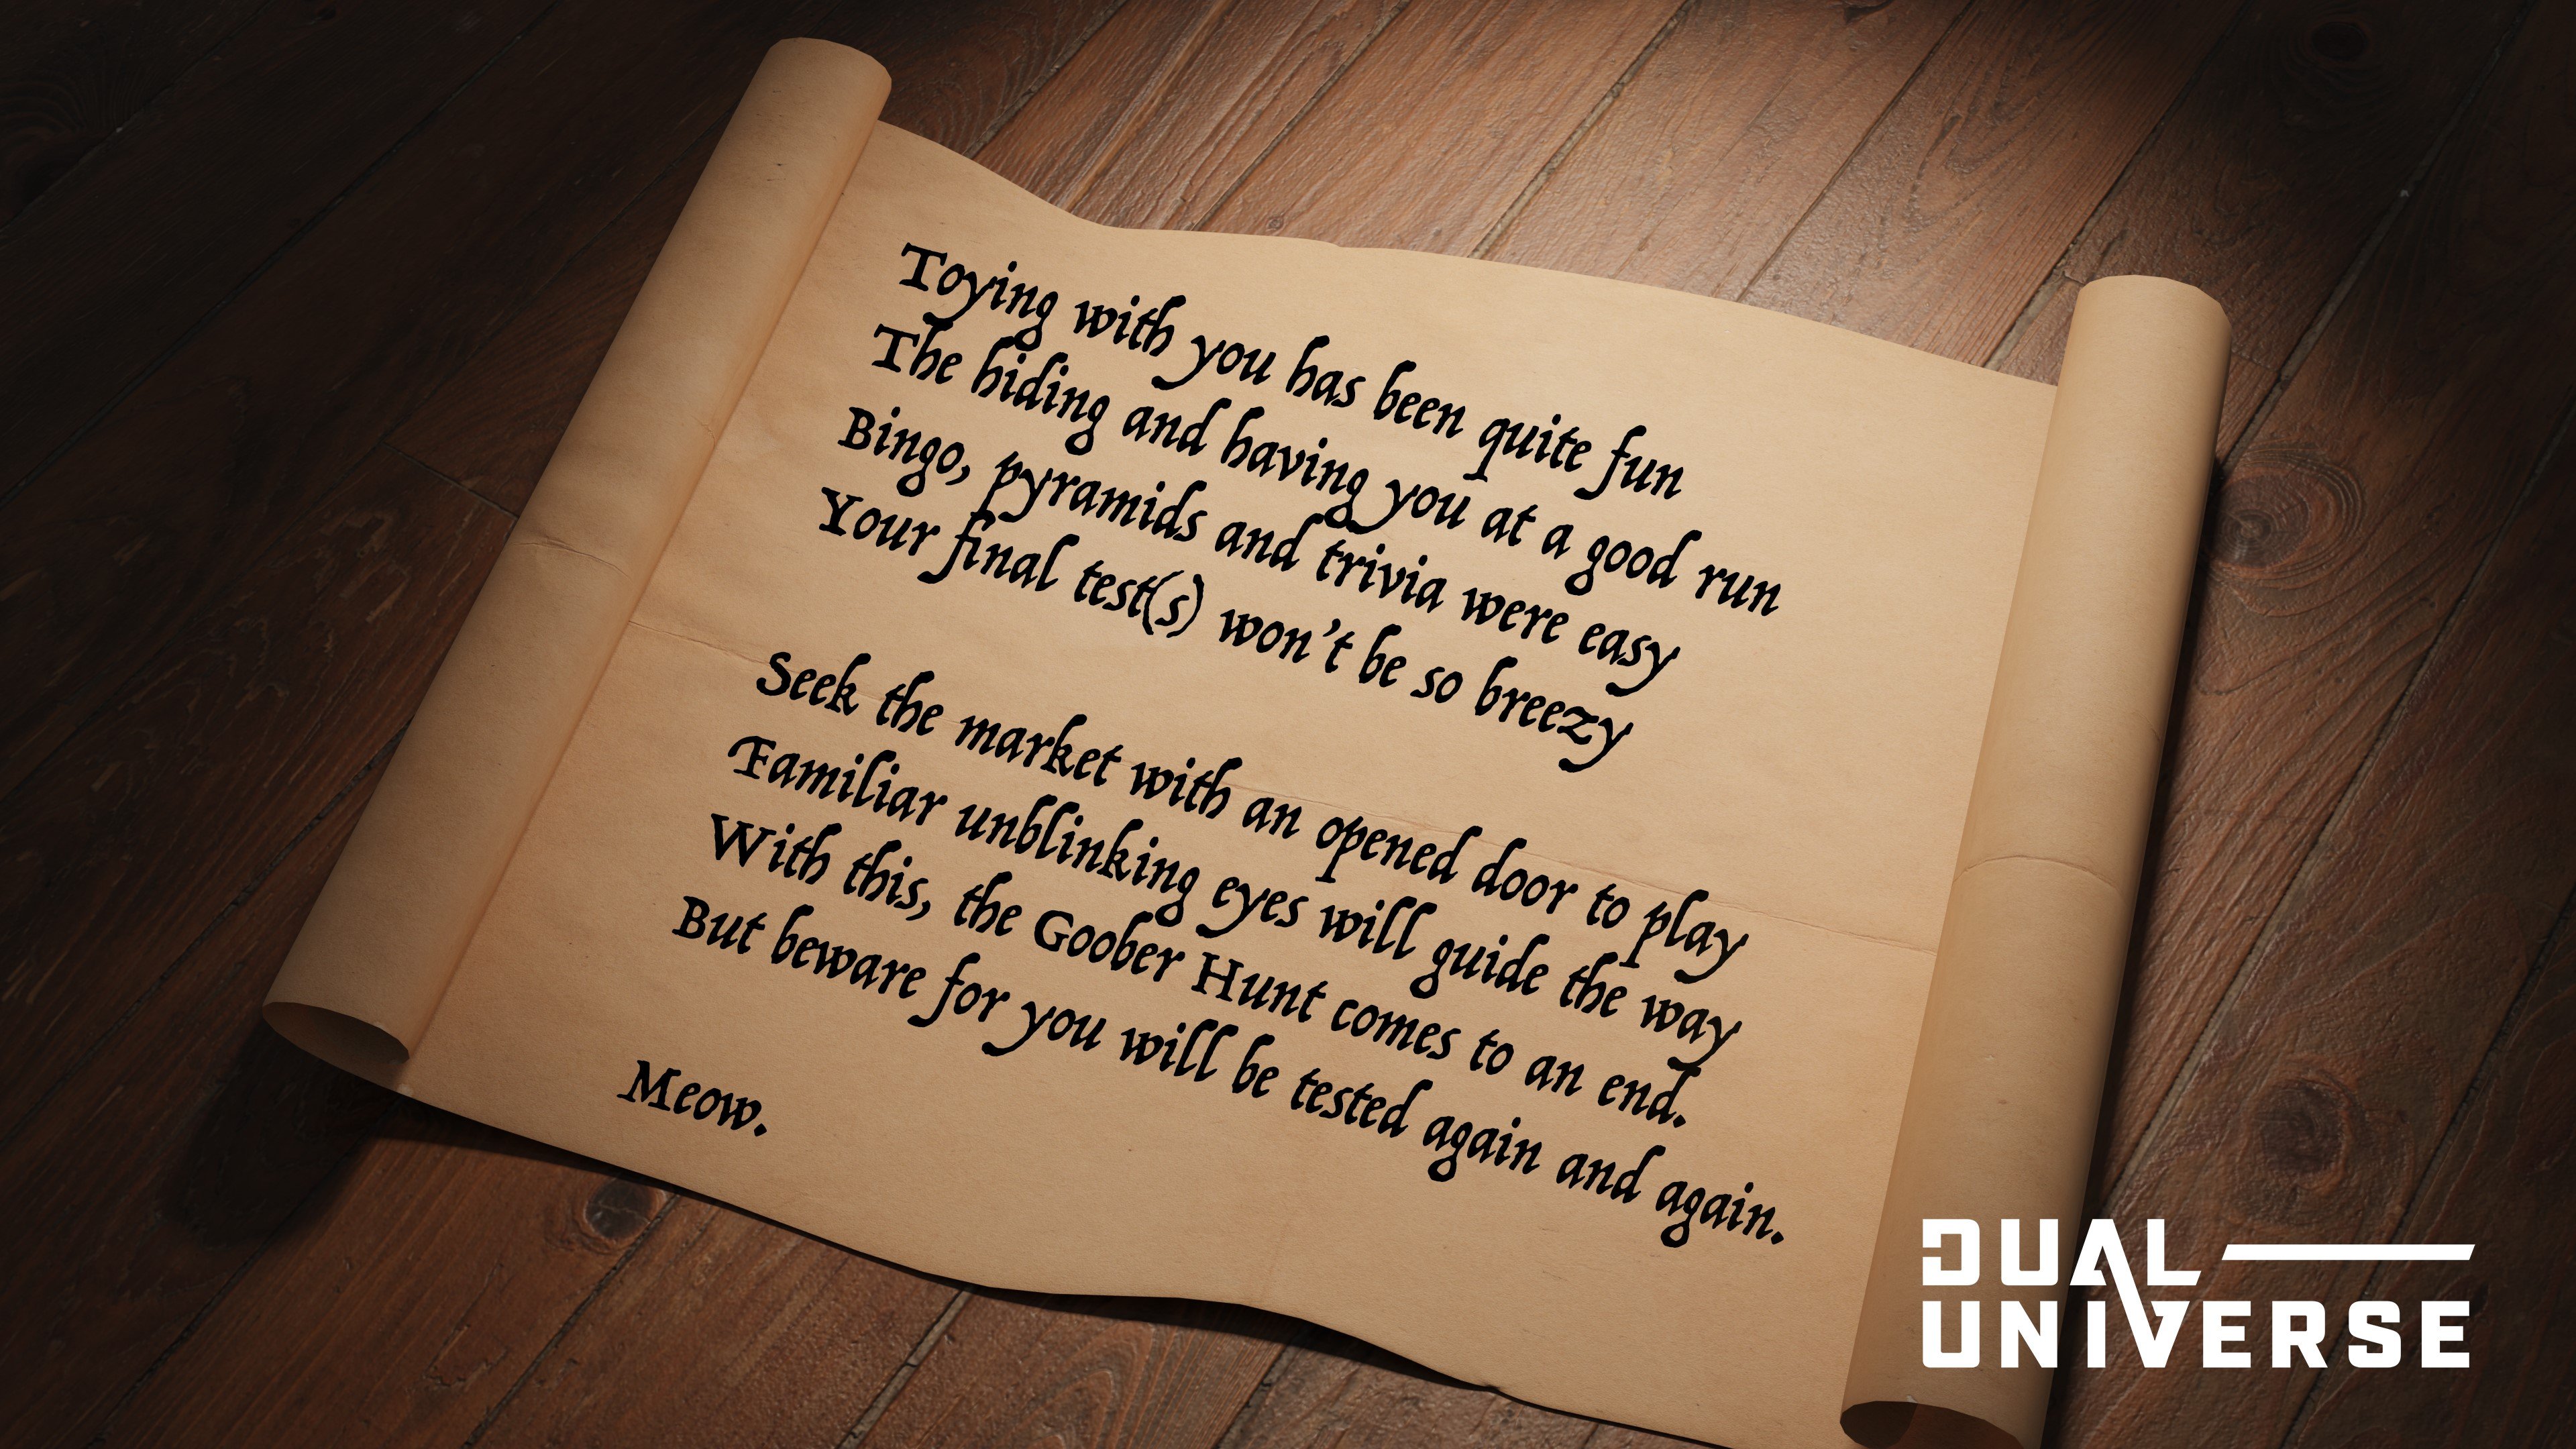 Toying with you has been quite fun
The hiding and having you at a good run
Bingo, pyramids and trivia were easy
Your final test(s) won't be so breezy
Seek the market with an opened door to play
Familiar unblinking eyes will guide the way
With this, the Goober Hunt comes to an end.
But beware for you will be tested again and again.
Meow.
DUAL
UNIVERSE